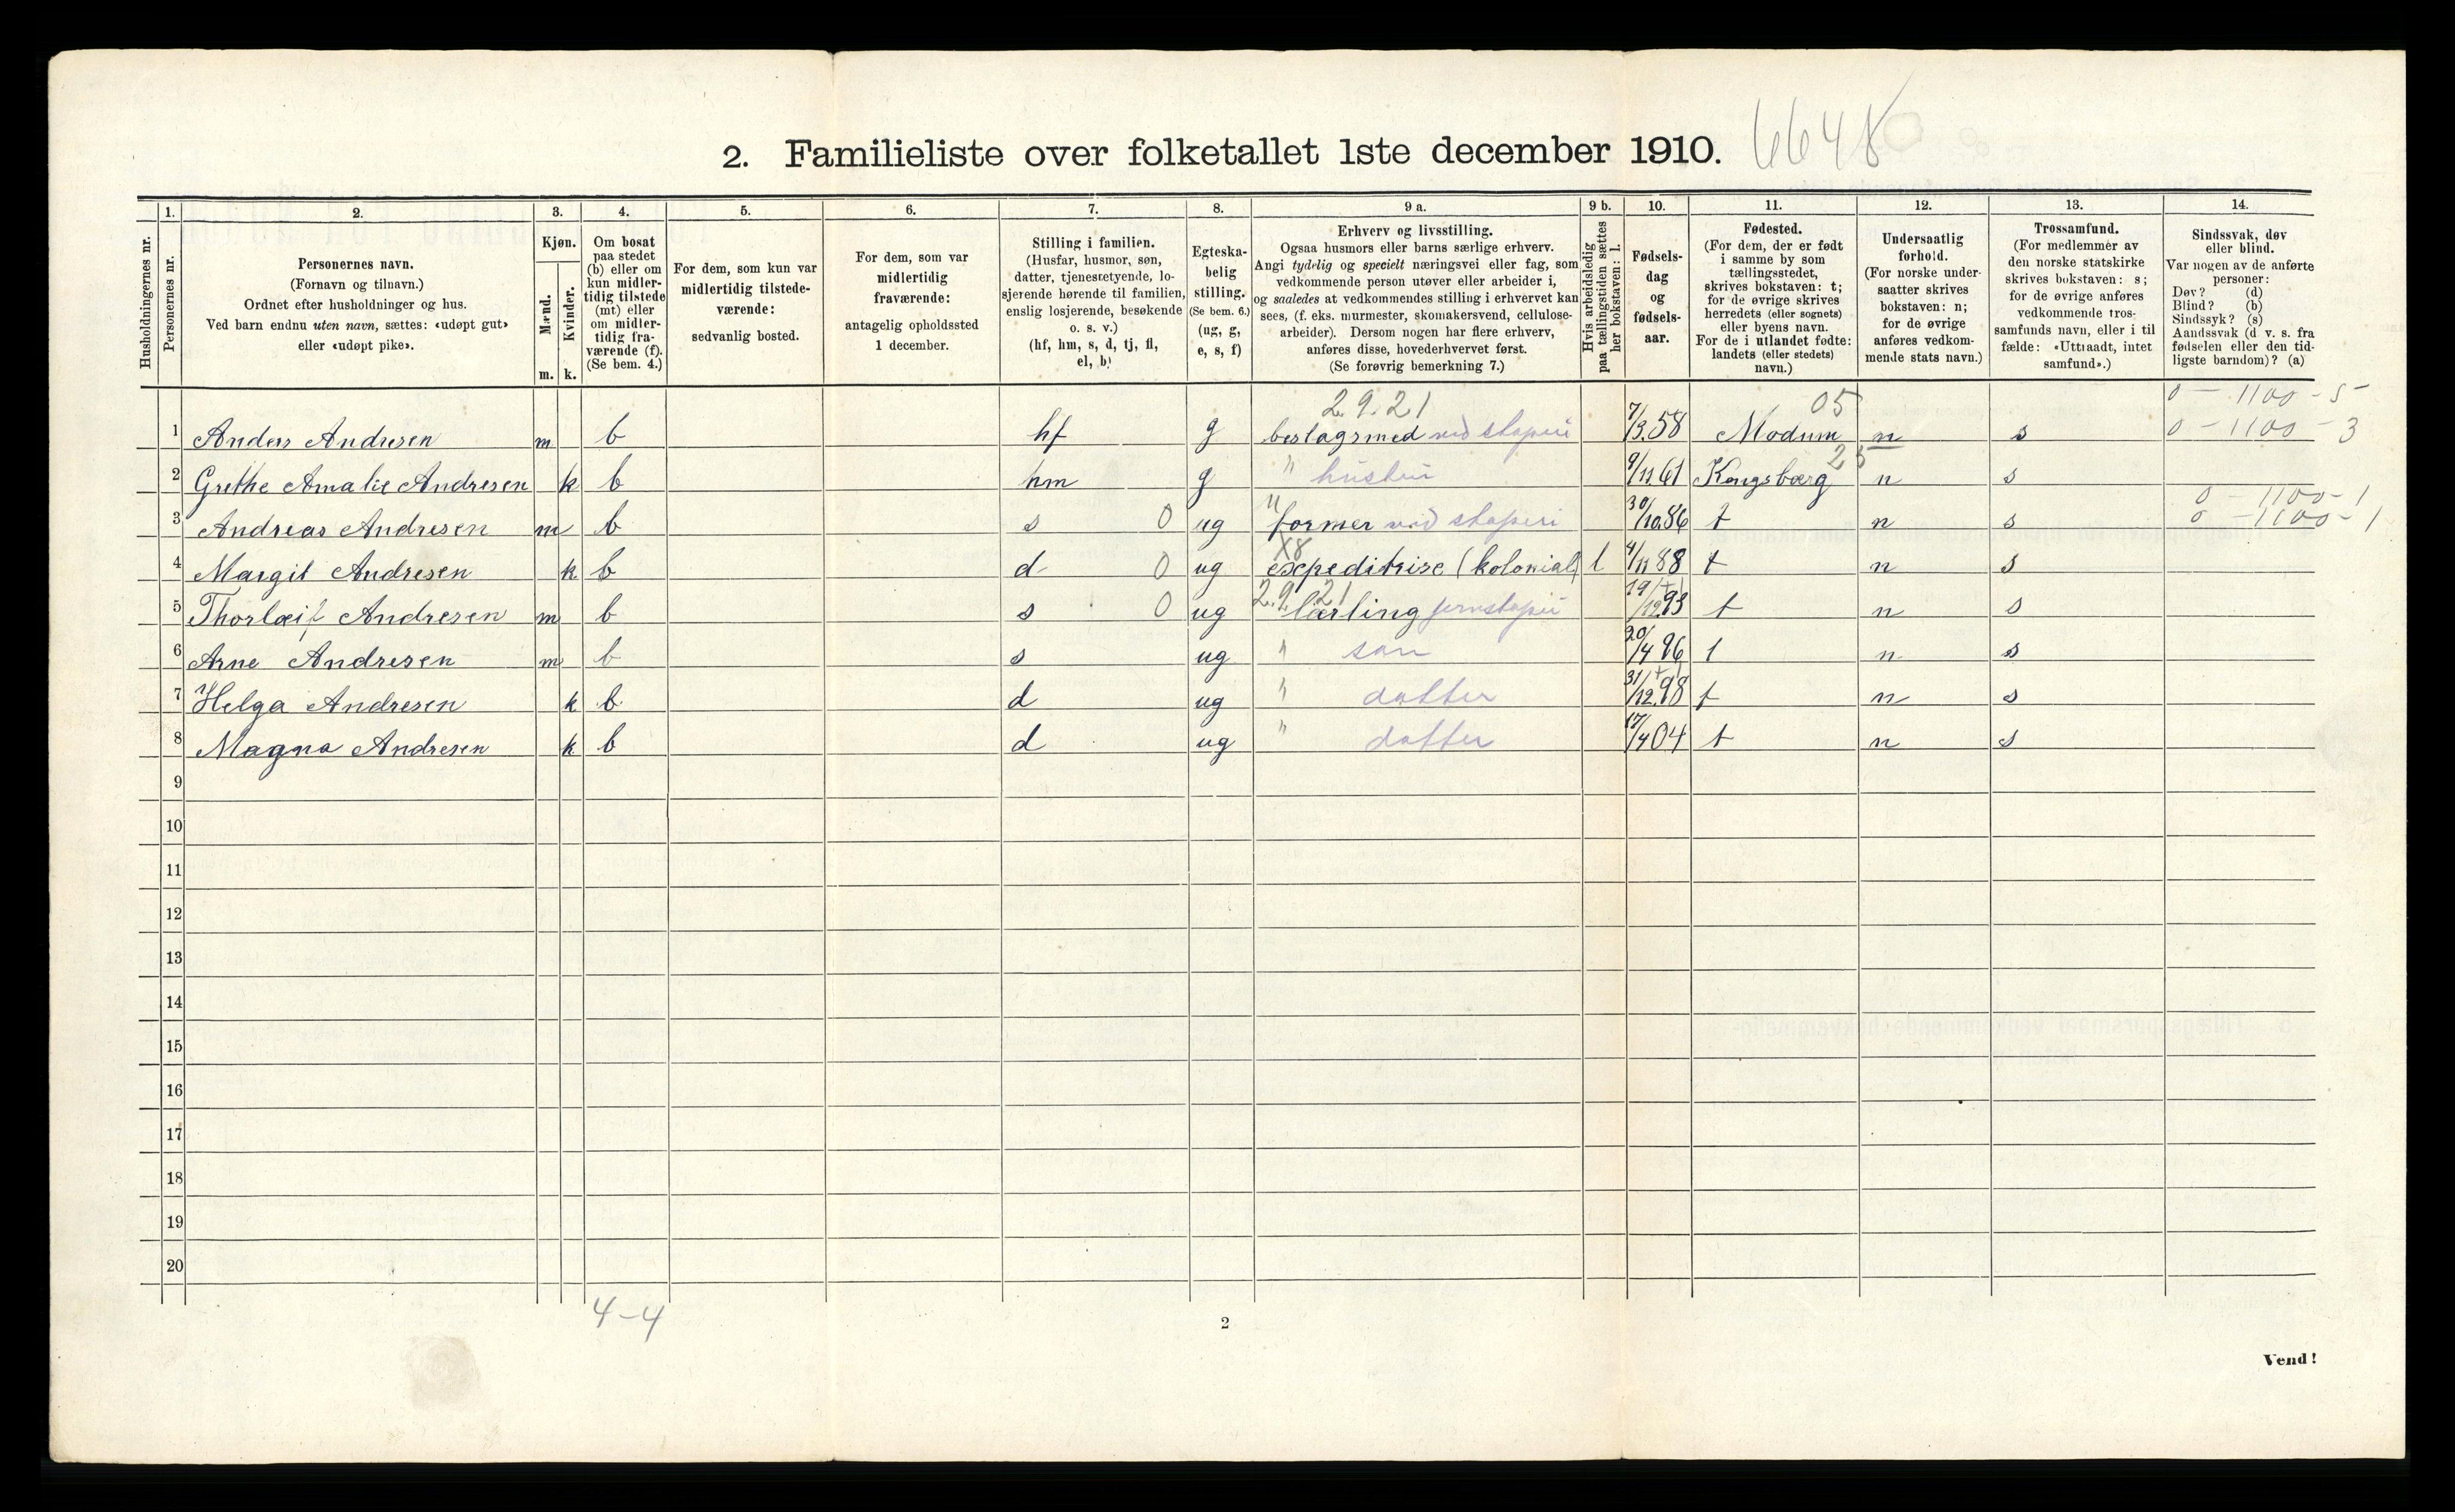 2. Familieliste over folketallet 1ste december 1910. 6648
Husholdningernes nr.
1. Personernes nr.
2. Personernes navn.
(Fornavn og tilnavn.)
Ordnet efter husholdninger og hus.
Ved barn endnu uten navn, sættes: «udøpt gut»
eller «udøpt pike».
3. Kjøn.
Mænd. Kvinder.
m. k.
4. Om bosat
paa stedet
(b) eller om
kun midler-
tidig tilstede
(mt) eller
om midler-
tidig fra-
værende (f).
(Se bem. 4.)
5. For dem, som kun var
midlertidig tilstede-
værende:
sedvanlig bosted.
6. For dem, som var
midlertidig
fraværende:
antagelig opholdssted
1 december.
7. Stilling i familien.
(Husfar, husmor, søn,
datter, tjenestetyende, lo-
sjerende hørende til familien,
enslig losjerende, besøkende
o. s. v.)
(hf, hm, s, d, tj, fl,
el, b)
8. Egteska-
belig
stilling.
(Se bem. 6.)
(ug, g,
e, s, f)
9 a. Erhverv og livsstilling.
Ogsaa husmors eller barns særlige erhverv.
Angi tydelig og specielt næringsvei eller fag, som
vedkommende person utøver eller arbeider i,
og saaledes at vedkommendes stilling i erhvervet kan
sees, (f. eks. murmester, skomakersvend, cellulose-
arbeider). Dersom nogen har flere erhverv,
anføres disse, hovederhvervet først.
(Se forøvrig bemerkning 7.)
9 b. Hvis arbeidsledig
paa tællingstiden sættes
her bokstaven: l.
10. Fødsels-
dag
og
fødsels-
aar.
11. Fødested.
(For dem, der er født
i samme by som
tællingsstedet,
skrives bokstaven: t;
for de øvrige skrives
herredets (eller sognets)
eller byens navn.
For de i utlandet fødte:
landets (eller stedets)
navn.)
12. Undersaatlig
forhold.
(For norske under-
saatter skrives
bokstaven: n;
for de øvrige
anføres vedkom-
mende stats navn.)
13. Trossamfund.
(For medlemmer av
den norske statskirke
skrives bokstaven: s;
for de øvrige anføres
vedkommende tros-
samfunds navn, eller i til
fælde: «Uttraadt, intet
samfund».)
14. Sindssvak, døv
eller blind.
Var nogen av de anførte
personer:
Døv? (d)
Blind? (b)
Sindssyk? (s)
Aandssvak (d v. s. fra
fødselen eller den tid-
ligste barndom)? (a)
2.9.21 05 0 - 1100 - 5
1 Anders Andresen m b hf g beslagsmed ved støperi 7/3.58 Modum n s 0 - 1100 - 3
25
2 Grethe Amalie Andresen k b hm g " hustru 9/11 61 Kongsberg n s
" 0 - 1100 - 1
3 Andreas Andresen m b s 0 ug former ved støperi 30/10.86 t n s 0 - 1100 - 1
X8
4 Margit Andresen k b d 0 ug expeditrise (kolonial) l 4/11 88 t n s
2.9.21
5 Thorleif Andresen m b s 0 ug lærling jernstøperi 19/12.93 t n s
6 Arne Andresen m b s ug " søn 20/4 96 t n s
7 Helga Andresen k b d ug " datter 31/12.98 t n s
8 Magna Andresen k b d ug " datter 17/4 04 t n s
9
10
11
12
13
14
15
16
17
18
19
20
4-4
2
Vend!